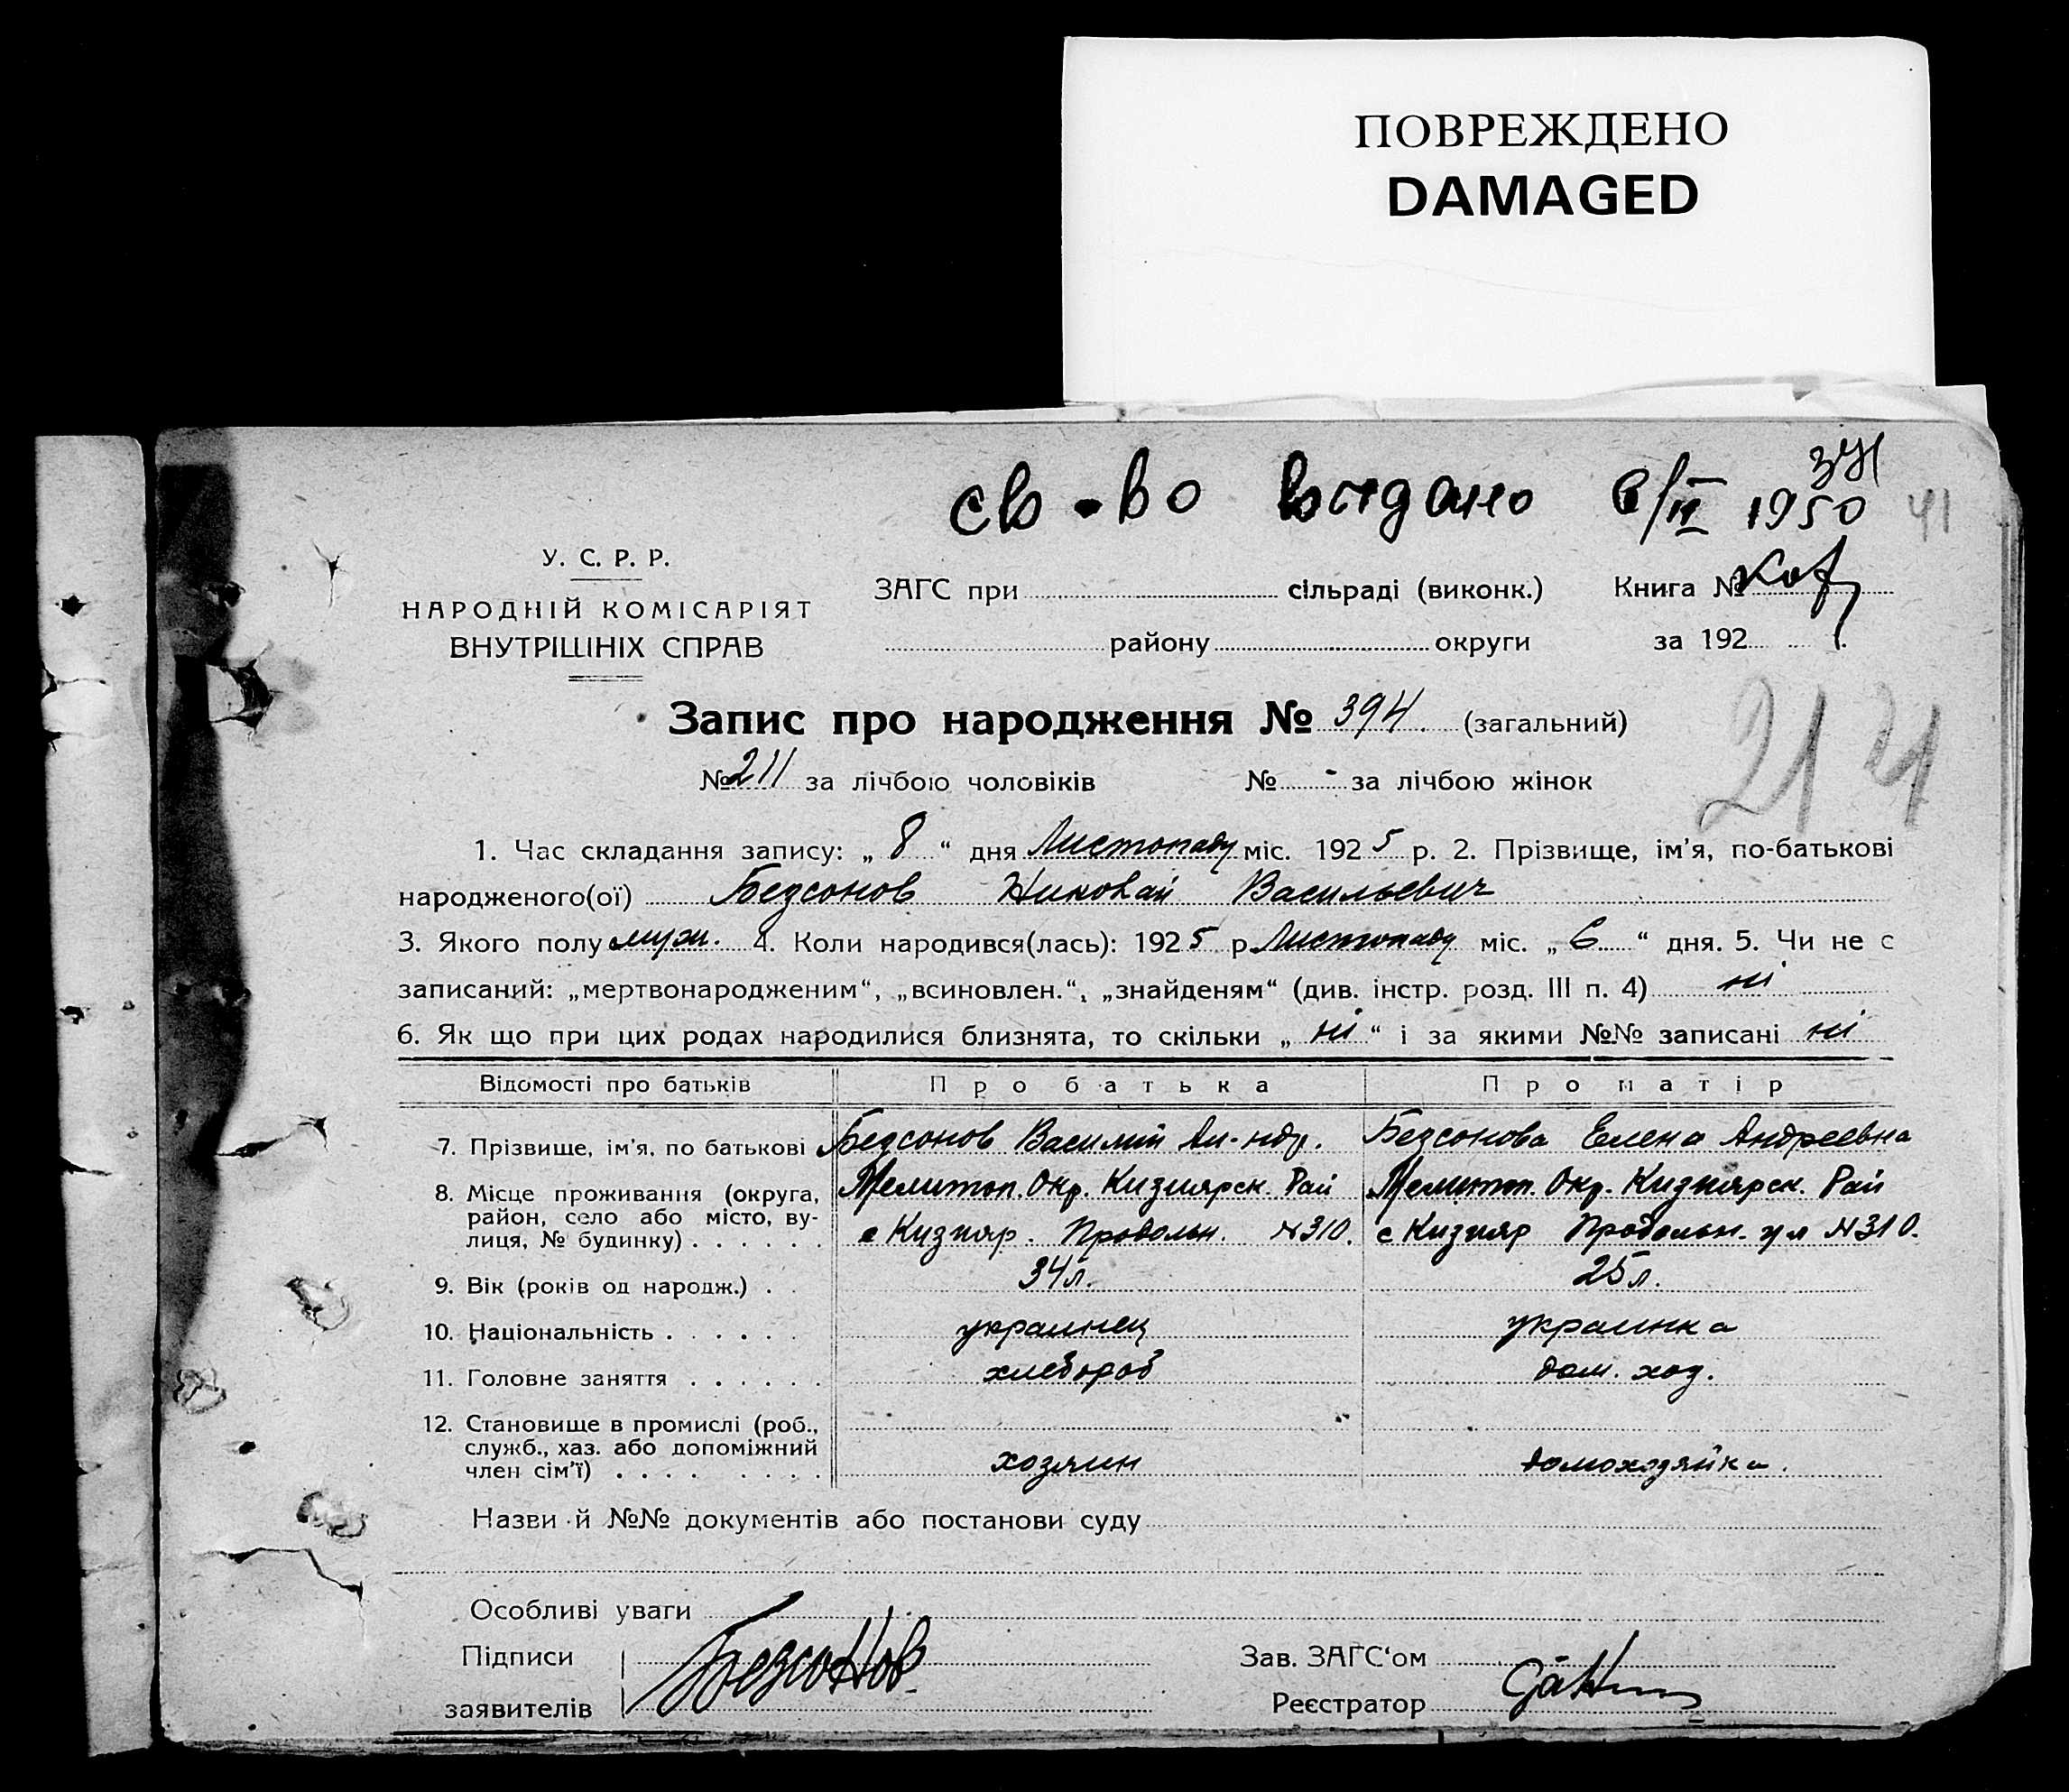 ПОВРЕЖДЕНО
DAMAGED
341
св-во выдано 6/II 1950 41
У. С. Р. Р.
НАРОДНІЙ КОМІСАРІЯТ
ВНУТРІШНІХ СПРАВ
ЗАГС при сільраді (виконк.) Книга №
району округи за 192
Запис про народження № 394. (загальний)
21 21
№ 211 за лічбою чоловіків № - за лічбою жінок
1. Час складання запису: „ 8 “ дня Листопаду міс. 1925 р. 2. Прізвище, ім'я, по-батькові
народженого(ої) Безсонов Николай Васильевич
3. Якого полу муж. 4. Коли народився(лась): 1925 р. Листопаду міс. „ 6 “ дня. 5. Чи не є
записаний: „мертвонародженим“, „всиновлен.“, „знайденям“ (див. інстр. розд. III п. 4) ні
6. Як що при цих родах народилися близнята, то скільки „ ні “ і за якими №№ записані ні
Відомості про батьків Про батька Про матір
7. Прізвище, ім'я, по батькові Безсонов Василий Ал-ндр. Безсонова Елена Андреевна
8. Місце проживання (округа, Мелитоп. Окр. Кизиярск. Рай Мелитоп. Окр. Кизиярск. Рай
район, село або місто, ву-
лиця, № будинку) с Кизияр. Продольн. №310. с Кизияр Продольн. ул №310.
9. Вік (років од народж.) 34 л. 25 л.
10. Національність украинец украинка
11. Головне заняття хлебороб дом. хоз.
12. Становище в промислі (роб.,
служб., хаз. або допоміжний
член сім'ї) хозяин домохозяйка.
Назви й №№ документів або постанови суду
Особливі уваги
Підписи Безсонов Зав. ЗАГС'ом
заявителів Реєстратор